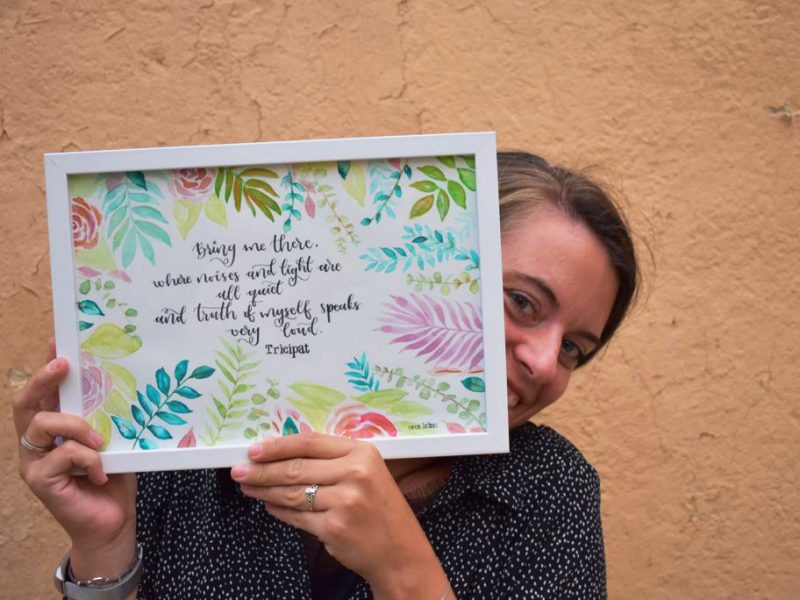 Bring me there,
where noises and light are
all quiet
and truth of myself speaks
very loud.
Tricipat